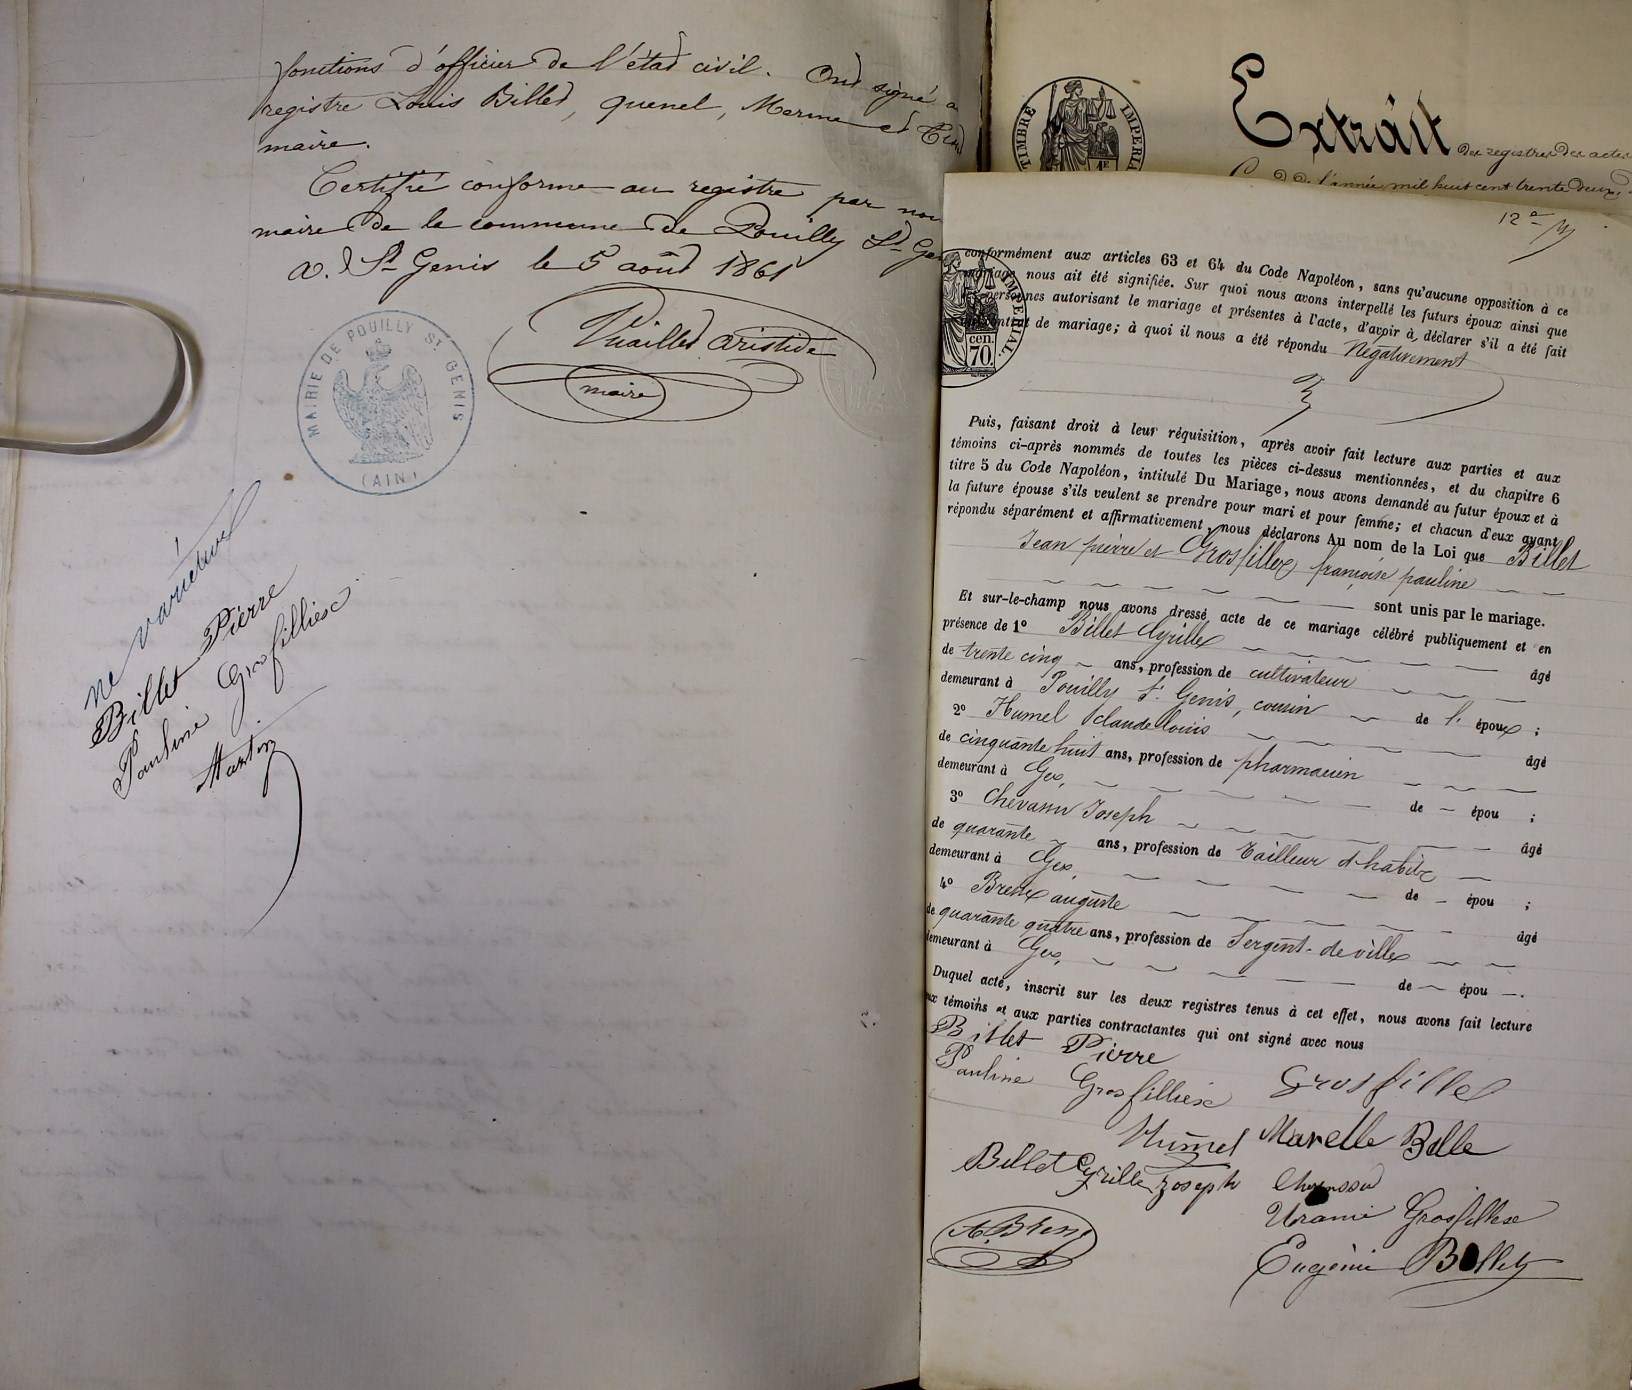 fonctions d'officier de l'état civil. Ont signé a
registre Louis Billet, quenel, Merme et
maire.
Certifié conforme au registre par nou
maire de la commune de Pouilly St Gen
a. St Genis le 5 août 1861
Vuaillet Aristide
maire
MAIRIE DE POUILLY ST GENIS
(AIN)
ne varietur
Billet Pierre
Pauline Grosfilliex
Martin
TIMBRE IMPERIA
Extrait des registres des actes
de l'année mil huit cent trente deux,
12e
IMPERIAL.
cen.
70.
conformément aux articles 63 et 64 du Code Napoléon, sans qu'aucune opposition à ce
mariage nous ait été signifiée. Sur quoi nous avons interpellé les futurs époux ainsi que
personnes autorisant le mariage et présentes à l'acte, d'avoir à déclarer s'il a été fait
de mariage; à quoi il nous a été répondu Négativement
Puis, faisant droit à leur réquisition, après avoir fait lecture aux parties et aux
témoins ci-après nommés de toutes les pièces ci-dessus mentionnées, et du chapitre 6
titre 5 du Code Napoléon, intitulé Du Mariage, nous avons demandé au futur époux et à
la future épouse s'ils veulent se prendre pour mari et pour femme; et chacun d'eux ayant
répondu séparément et affirmativement, nous déclarons Au nom de la Loi que Billet
Jean pierre et Grosfillex françoise pauline
sont unis par le mariage.
Et sur-le-champ nous avons dressé acte de ce mariage célébré publiquement et en
présence de 1º Billet Cyrille âgé
de trente cinq ans, profession de cultivateur
demeurant à Pouilly St Genis, cousin de l' époux ;
2º Humel Claude Louis âgé
de cinquante huit ans, profession de pharmacien
demeurant à Gex, de épou ;
3º Chevassu Joseph âgé
de quarante ans, profession de Tailleur d'habits
demeurant à Gex, de épou ;
4º Brenx auguste âgé
de quarante quatre ans, profession de Sergent-de ville
demeurant à Gex, de épou .
Duquel acte, inscrit sur les deux registres tenus à cet effet, nous avons fait lecture
aux témoins et aux parties contractantes qui ont signé avec nous
Billet Pierre
Pauline Grosfilliex Grosfillex
Humel Marelle Balle
Billet Cyrille Joseph Chevassu
Uranie Grosfillex
A. Bren
Eugénie Bollet